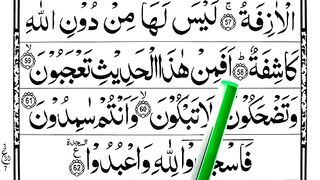 الْاٰزِفَةُ ﴿57﴾ لَيْسَ لَهَا مِنْ دُوْنِ اللّٰهِ
كَاشِفَةٌ ﴿58﴾ اَفَمِنْ هٰذَا الْحَدِيْثِ تَعْجَبُوْنَ ﴿59﴾
وَتَضْحَكُوْنَ وَلَا تَبْكُوْنَ ﴿60﴾ وَاَنْتُمْ سٰمِدُوْنَ ﴿61﴾
فَاسْجُدُوْا لِلّٰهِ وَاعْبُدُوْا ﴿62﴾